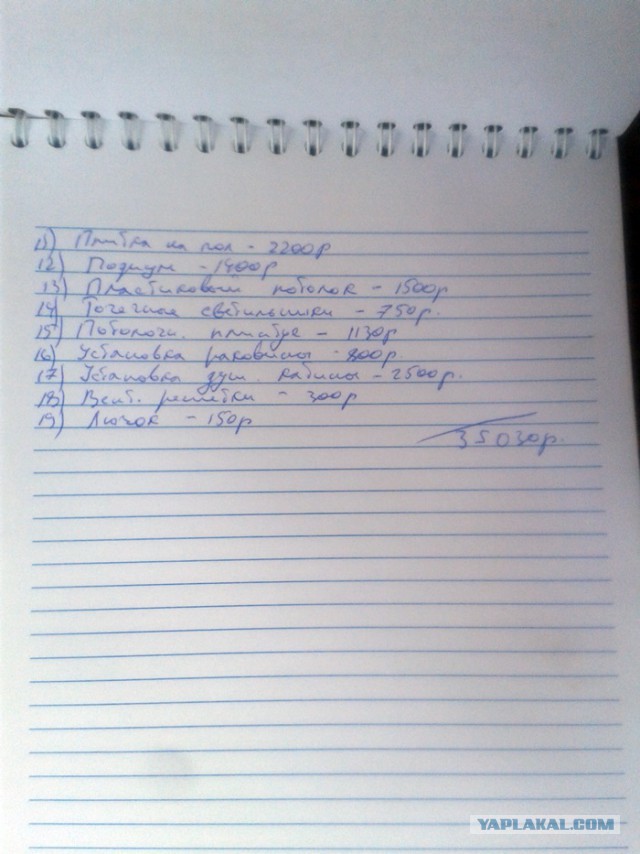 11) Плитка на пол - 2200р
12) Подиум - 1400р
13) Пластиковый потолок - 1500р
14) Точечные светильники - 750р.
15) Потолочн. плинтус - 1130р
16) Установка раковины - 800р.
17) Установка душ. кабины - 2500р.
18) Вент. решетки - 300р
19) Лючок - 150р
35030р.
YAPLAKAL.COM